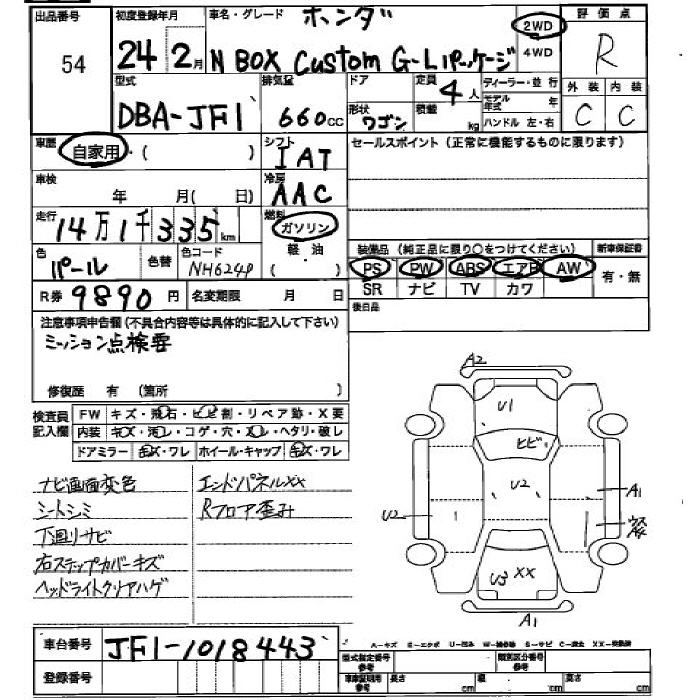 出品番号 初度登録年月 車名・グレード ホンダ 2WD 4WD 評価点
54 24年2月 N BOX Custom G-Lパッケージ R
型式 排気量 ドア 定員 4人 ディーラー・並行 外装 内装
DBA-JF1 660cc 形状 ワゴン 積載 kg モデル年式 年 ハンドル 左・右 C C
車歴 自家用・( ) シフト IAT セールスポイント(正常に機能するものに限ります)
車検 年 月( 日) 冷房 AAC
走行 14万1千335km 燃料 ガソリン 軽・油 ( )
装備品(純正品に限り○をつけてください) 新車保証書
色 パール 色替 色コード NH624P PS PW ABS エアB AW 有・無
SR ナビ TV カワ
R券 9890円 名変期限 月 日 後日品
注意事項申告欄(不具合内容等は具体的に記入して下さい)
ミッション点検要
修復歴 有 (箇所 )
検査員記入欄 FW キズ・飛石・ヒビ割・リペア跡・X要
内装 キズ・汚レ・コゲ・穴・スレ・ヘタリ・破レ
ドアミラー キズ・ワレ ホイール・キャップ キズ・ワレ
ナビ画面変色 エンドパネルXX
シートシミ Rフロア歪み
下廻りサビ
右ステップカバーキズ
ヘッドライトクリアハゲ
A2
U1
ヒビ
U2
A1
U2
ウス
U3 XX
A1
車台番号 JF1-1018443
登録番号
A-キズ E-エクボ U-凹み W-補修跡 S-サビ C-腐食 XX-交換済
型式指定番号 類別区分番号
車庫証明用参考 長さ cm 幅 cm 高さ cm